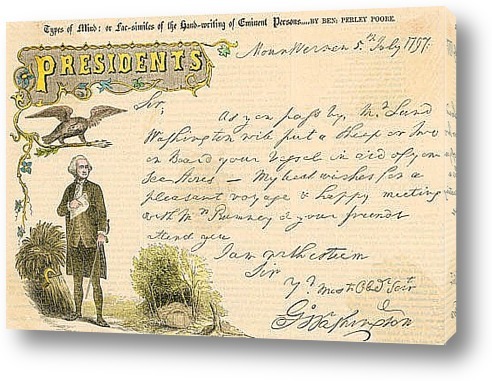 Types of Mind: or Fac-similes of the Hand-writing of Eminent Persons....BY BEN: PERLEY POORE.
PRESIDENTS
Mount Vernon 5th July 1797.
Sir,
As you pass by, Mr Lund
Washington will put a Sheep or two
on Board your Vessel in aid of your
Sea Stores — My best wishes for a
pleasant voyage & happy meeting
with Mrs Rumney & your friends
attend you
I am with esteem
Sir
Yr Most Obedt Servt
Go Washington